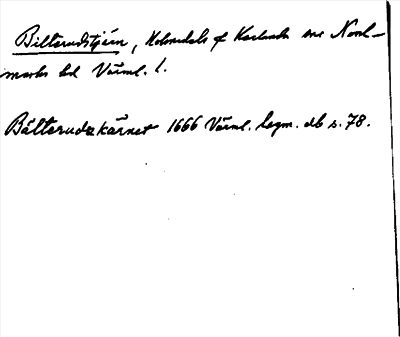 Bilterudstjärn, Holmedals sf Karlanda sn Nord-
marks hd Värml. l.
Bälterudzkärnet 1666 Värml. legm. db s. 78.